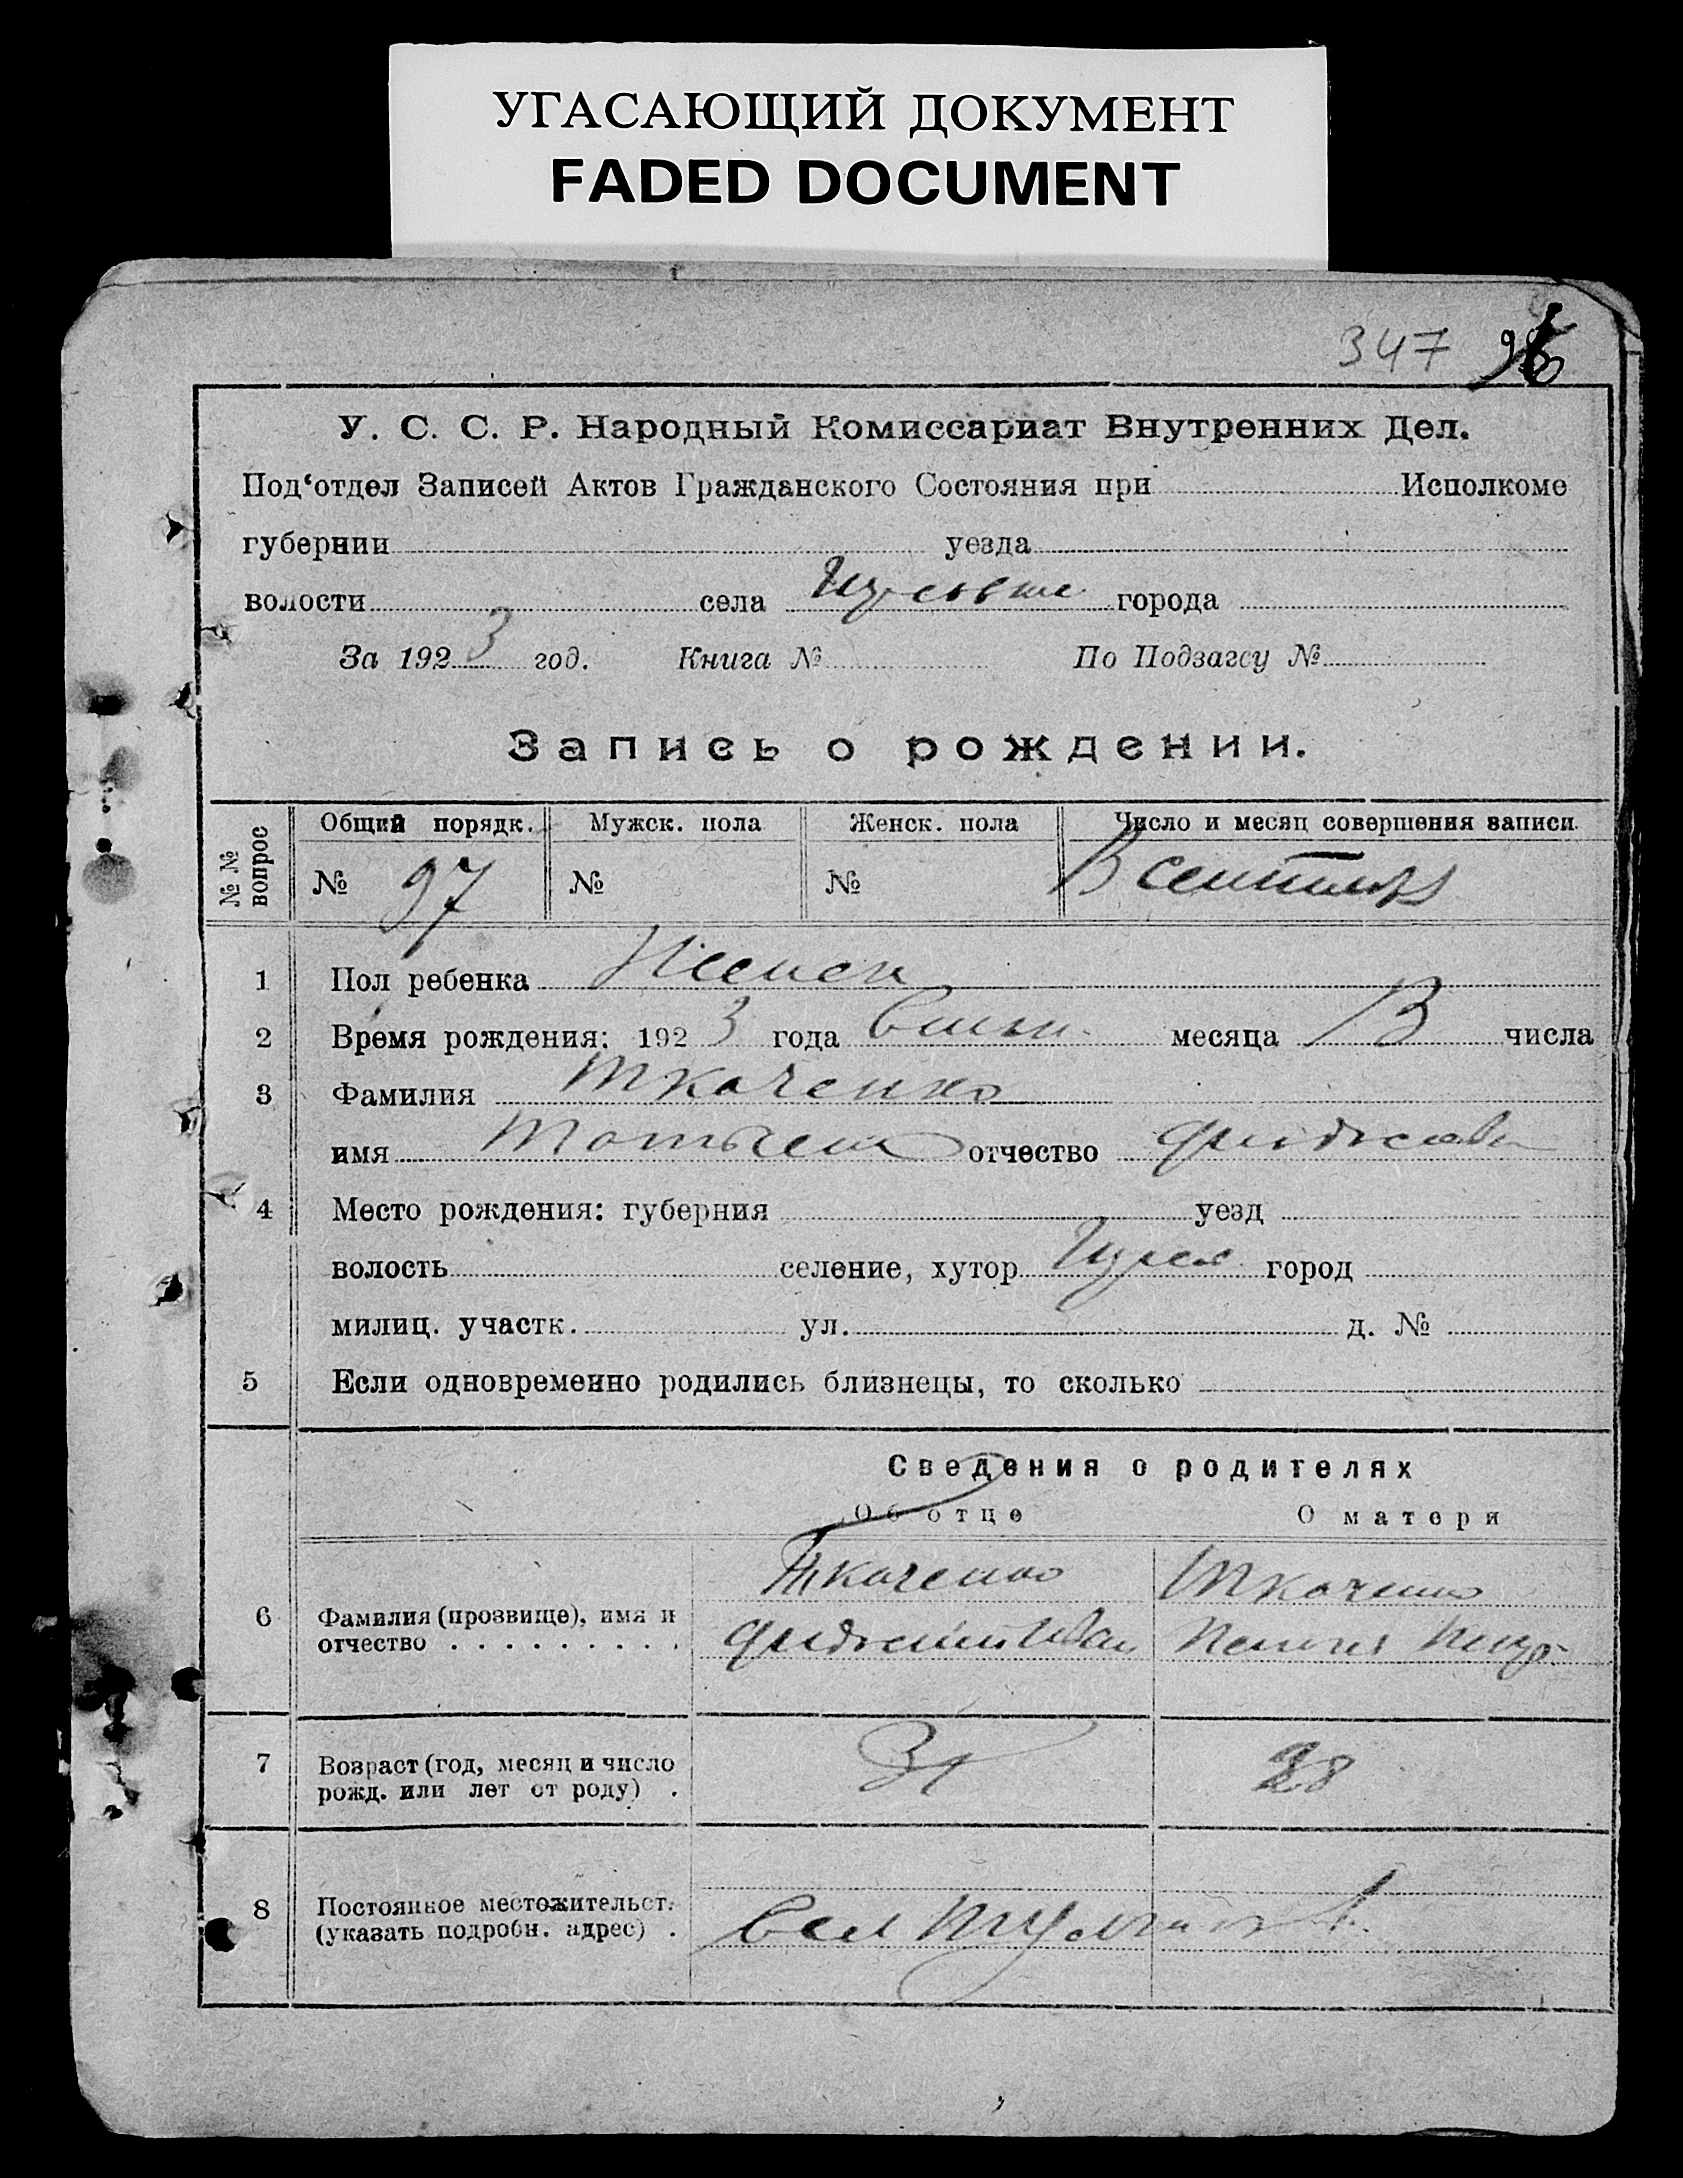 УГАСАЮЩИЙ ДОКУМЕНТ
FADED DOCUMENT
347 98
У. С. С. Р. Народный Комиссариат Внутренних Дел.
Под‘отдел Записей Актов Гражданского Состояния при Исполкоме
губернии уезда
волости села города
За 1923 год. Книга № По Подзагсу №
Запись о рождении.
№ № вопрос Общий порядк. Мужск. пола Женск. пола Число и месяц совершения записи.
№ 97 № №
1 Пол ребенка Женск
2 Время рождения: 1923 года месяца числа
3 Фамилия Ткаченко
имя отчество
4 Место рождения: губерния уезд
волость селение, хутор город
милиц. участк. ул. д. №
5 Если одновременно родились близнецы, то сколько
Сведения о родителях
Об отце О матери
Ткаченко Ткаченко
6 Фамилия (прозвище), имя и
отчество
7 Возраст (год, месяц и число 28
рожд. или лет от роду)
8 Постоянное местожительст.
(указать подробн. адрес)